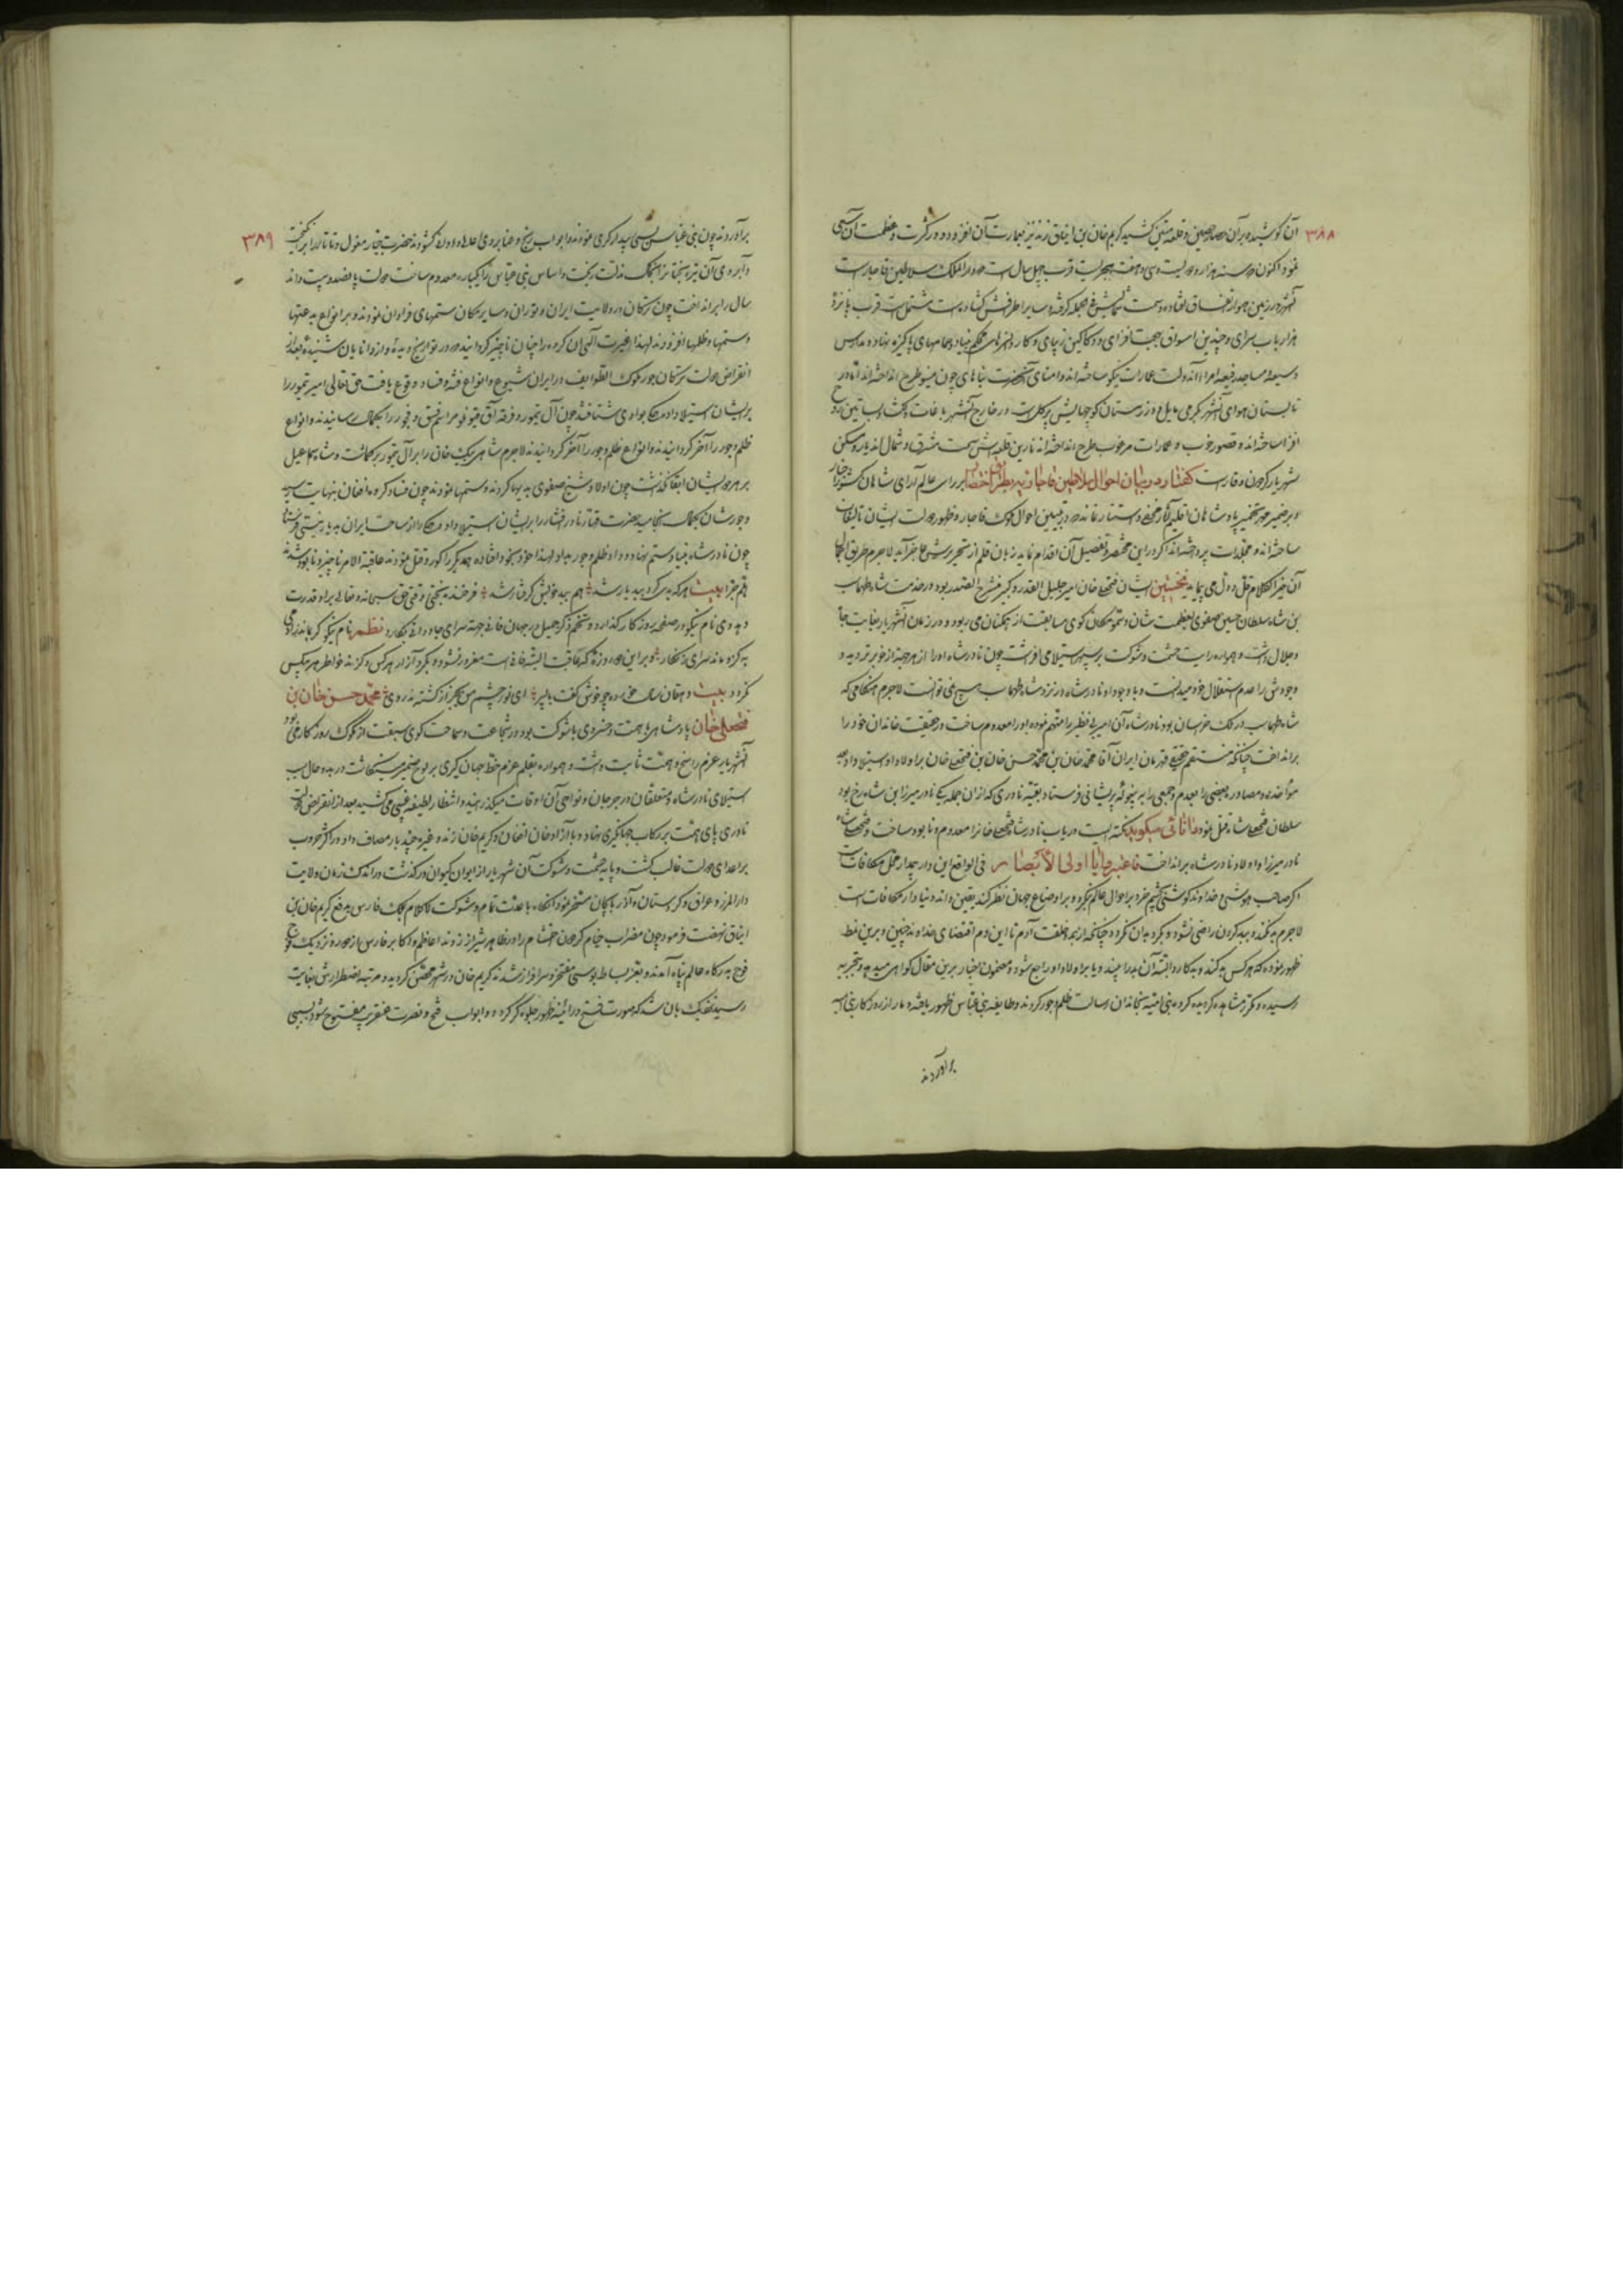 ۳۸۸
آن کوشیده بر آن حصار حصین و قلعه متین کشید کریم خان بن ایناق زند نیز بعمارت آن افزوده و در کثرت و عظمت آن سعی
نمود اکنون که سنه هزار و دویست و سی و هفت هجریست قرب چهل سال است که دار الملک سلاطین قاجار است
آنشهر در زمین هموار اتفاق افتاده و سمت شمالش فی الجمله گرفته و سایر اطرافش گشاده است مشتمل است قرب پانزده
هزار باب سرای و چندین اسواق بهجت افزای و دکاکین زیبای و کاروانسرای محکم بنیاد و حمامهای پاکیزه نهاد و مدارس
وسیعه و مساجد رفیعه امرا آندولت عمارات نیکو ساخته اند و امنای آنحضرت بناهای چون مینو طرح انداخته اند اما در
تابستان هوای آنشهر بگرمی مایل و در زمستان کوچهایش پر گل است در خارج آنشهر باغات دلگشا و بساتین روح
افزا ساخته اند و قصور خوب و عمارات مرغوب طرح انداخته اند نارین قلعه اش سمت مشرق و شمال بلد یار و مسکن
شهریار گردون وقار است گفتار در بیان احوال سلاطین قاجاریه بطریق اختصار بر رای عالم آرای شاهان کشور دار
و بر ضمیر مهر تخمیر پادشاهان اقلیم آثار مخفی و مستتر نماند که در تبیین احوال ملوک قاجار و ظهور دولت ایشان تالیفات
ساخته اند و مجلدات پرداخته اند اگر در این مختصر بتفصیل آن اقدام نماید زبان قلم از تحریرش عاجز آید لاجرم طریق اجمال
آن خیر الکلام قل و دل می پیماید نخستین ایشان فتحعلی خان امیر جلیل القدر و کبیر منشرح الصدر بود در خدمت شاه طهماسب
بن شاه سلطان حسین صفوی بعظمت شان و سمو مکان گوی مسابقت از همگنان می ربود و در زمان آنشهریار بغایت جاه
و جلال داشت و همواره رایت حشمت و شوکت بر سپهر استیلا می افراشت چون نادر شاه او را از هر جهة از خود برتر دید و
وجودش را عدم استقلال خود میدانست و با وجود او نادر شاه در نزد شاه طهماسب هیچ نمی توانست لاجرم هنگامی که
شاه طهماسب در ملک خراسان بود نادر شاه آن امیر بی نظیر را متهم نموده او را معدوم ساخت و در حقیقت خاندان خود را
برانداخت چنانکه منتقم حقیقی قهرمان ایران آقا محمد خان بن محمد حسن خان بن فتحعلی خان بر اولاد او استیلا داد بعد
مواخذه و مصادره بعضی را بعدم و جمعی را به بیغوله پریشانی فرستاد بقیه نادری که از ان جمله یکی نادر میرزا بن شاهرخ بود
سلطان فتحعلی شاه قتل نمود دانائی میگوید نکته ایست دریاب نادر شاه فتحعلی خانرا معدوم و نابود ساخت و فتحعلی شاه
نادر میرزا و اولاد نادر شاه برانداخت فاعتبروا یا اولی الابصار فی الواقع این دار جهد از محل مکافات است
اگر صاحب هوشی و خداوند گوشی بچشم خرد بر احوال عالم نگرد و بر اوضاع جهان نظر کند یقین داند دنیا دار مکافات است
لاجرم بد نکند و ببد کردن راضی نشود و بگرد بدان نگردد چنانکه از بدو خلقت آدم تا این دم اقتضای خداوند چنین و برین نمط
ظهور نموده که هر کس بد کند و بد کارد البته آن بدرا چیند و یا بر اولاد او راجع شود و مضمون اخبار برین مقال گواهی میدهد و بتجربه
رسیده و مکرر مشاهده گردیده گروه بنی امیه بخاندان رسالت ظلم و جور کردند و طایفه بنی عباس ظهور یافته دمار از روزگار بنی امیه
برآوردند
۳۸۹
برآوردند چون بنی عباس بسی بیدادگری نمودند و ابواب رنج و عنا بر روی اعلا و ادون گشودند حضرت بیچاره مغول و تاتار را برانگیخت
و آبروی آن تیره بختانرا بخاک مذلت ریخت و اساس بنی عباس را بیکباره معدوم ساخت دولت پانصد و بیست و اند
سال را برانداخت چون ترکان در ولایت ایران و توران و سایر مکان ستمهای فراوان نمودند و بر انواع بدعتها
و ستمها و ظلمها افزودند لهذا غیرت الهی آن گروه را چنان ناچیز گردانید که در تواریخ دیده و از دانایان شنیده بعد از
انقراض دولت ترکان جور ملوک الطوایف در ایران شیوع و انواع فتنه و فساد وقوع یافت حق تعالی امیر تیمور را
بر ایشان استیلا داد همگی بوادی شتافتند چون آل تیمور و فرقه آق قوینلو مراسم فسق و فجور را بکمال رسانیدند و انواع
ظلم و جور را آخر گردانیدند و انواع ظلم و جور را آخر گردانیدند لاجرم شاهی بیک خان را بر آل تیمور برگماشت و شاه اسماعیل
بر هر دو ایشان ابقا نگذشت چون اولاد شیخ صفوی بدیها کردند و ستمها نمودند چون فساد گروه افغان بنهایت رسید
و جورشان بکمال انجامید حضرت قهار نادر افشار را بر ایشان استیلا داد و همگی را از ساحت ایران بدیار نیستی فرستاد
چون نادر شاه بنیاد ستم نهاد و داد ظلم و جور بداد لهذا خود بخود افتاده همدیگر را کور و قتل نمودند عاقبة الامر ناچیز و نابود شدند
هم جزا بیت هر که بد کرد ببد یار شد هم ببد خویش گرفتار شد فرخنده بختی که وقتی حق سبحانه و تعالی بر او قدرت
دهد وی نام نیکو در صفحه روزگار گذارد و تخم ذکر جمیل در جهان فانی جهة سرای جاودانی بکارد نظم نام نیکو گر بماند ز آدمی
به کزو ماند سرای زرنگار و بر این دو روزه که عاقبت البته فانی است مغرور نشود و بگرد آزار هر کس و گزند خواطر هیچکس
نگردد بیت دهقان سالخورده چه خوش گفت با پسر ای نور چشم من بجز از کشته ندروی محمد حسن خان بن
فتحعلی خان پادشاهی با همت و خسروی با شوکت بود در شجاعت و سماحت گوی سبقت از ملوک روزگار می ربود
آنشهریار عزم راسخ و همت ثابت داشت و همواره بقلم عزم خط جهانگیری بر لوح ضمیر مینگاشت در بدو حال بسبب
استیلای نادر شاه و متعلقان در جرجان و نواحی آن اوقات میگذرانید و انتظار لطیفه غیبی می کشید بعد از انقراض دولت
نادری پای همت بر رکاب جهانگیری نهاد و با آزاد خان افغان و کریم خان زند و غیره چند بار مصاف داد در اکثر حروب
بر اعدای دولت غالب گشت و پایه حشمت و شوکت آن شهریار از ایوان کیوان درگذشت در اندک زمان ولایت
دار المرز و عراق و کردستان و آذربایجان مسخر نمود آنگاه با عدت تمام و شوکت لاکلام بملک فارس بدفع کریم خان بن
ایناق نهضت فرمود چون مضراب خیام گردون احتشام را در ظاهر شیراز زدند اعاظم و اکابر فارس از دور و نزدیک فوج
فوج بدرگاه عالم پناه آمدند و بعز بساط بوسی مفتخر و سرافراز شدند کریم خان در شهر متحصن گردید و مرتبه اضطرارش بغایت
رسید نزدیک بان شد که صورت فتح در آئینه ظهور جلوه گر گردد و ابواب فتح و نصرت عنقریب مفتوح شود بسببی